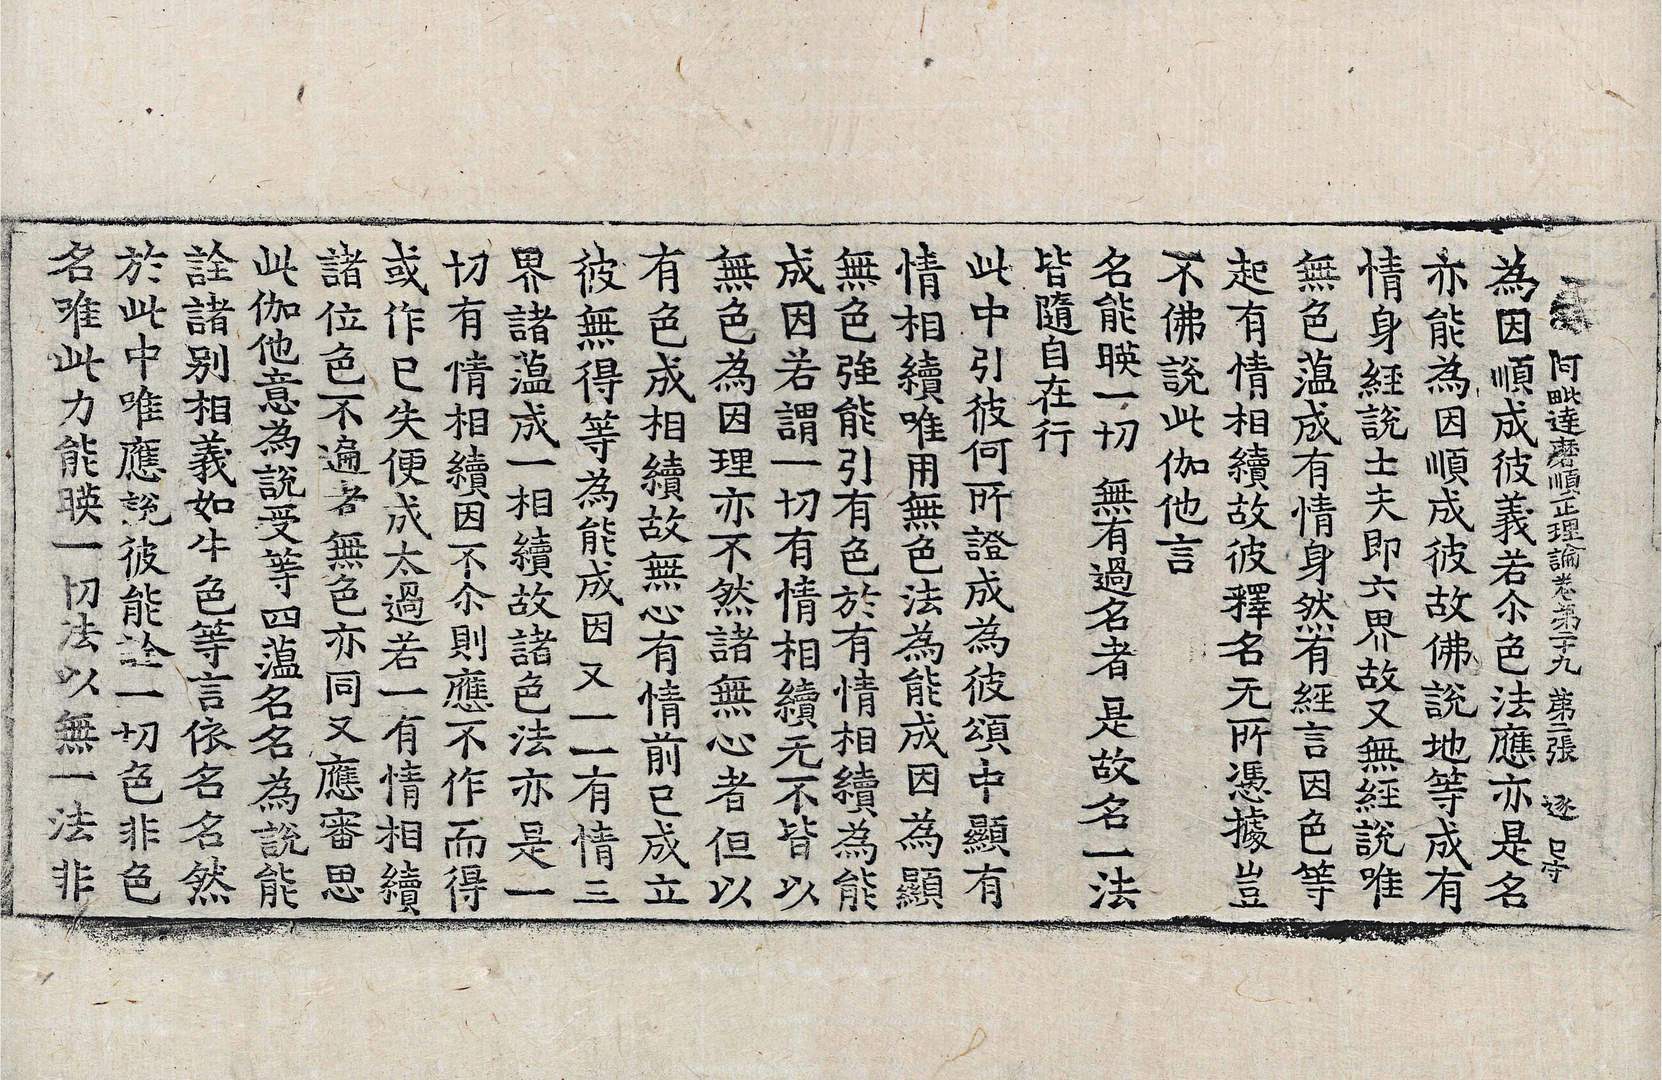 阿毗達磨順正理論卷第二十九 第二張 逐
為因順成彼義若尒色法應亦是名
亦能為因順成彼故佛說地等成有
情身經說士夫即六界故又無經說唯
無色薀成有情身然有經言因色等
起有情相續故彼釋名无所憑據豈
不佛說此伽他言
名能暎一切 無有過名者 是故名一法
皆隨自在行
此中引彼何所證成為彼頌中顯有
情相續唯用無色法為能成因為顯
無色強能引有色於有情相續為能
成因若謂一切有情相續无不皆以
無色為因理亦不然諸無心者但以
有色成相續故無心有情前已成立
彼無得等為能成因又一一有情三
界諸薀成一相續故諸色法亦是一
切有情相續因不尒則應不作而得
或作已失便成太過若一有情相續
諸位色不遍者無色亦同又應審思
此伽他意為說受等四薀名名為說能
詮諸別相義如牛色等言依名名然
於此中唯應說彼能詮一切色非色
名唯此力能暎一切法以無一法非